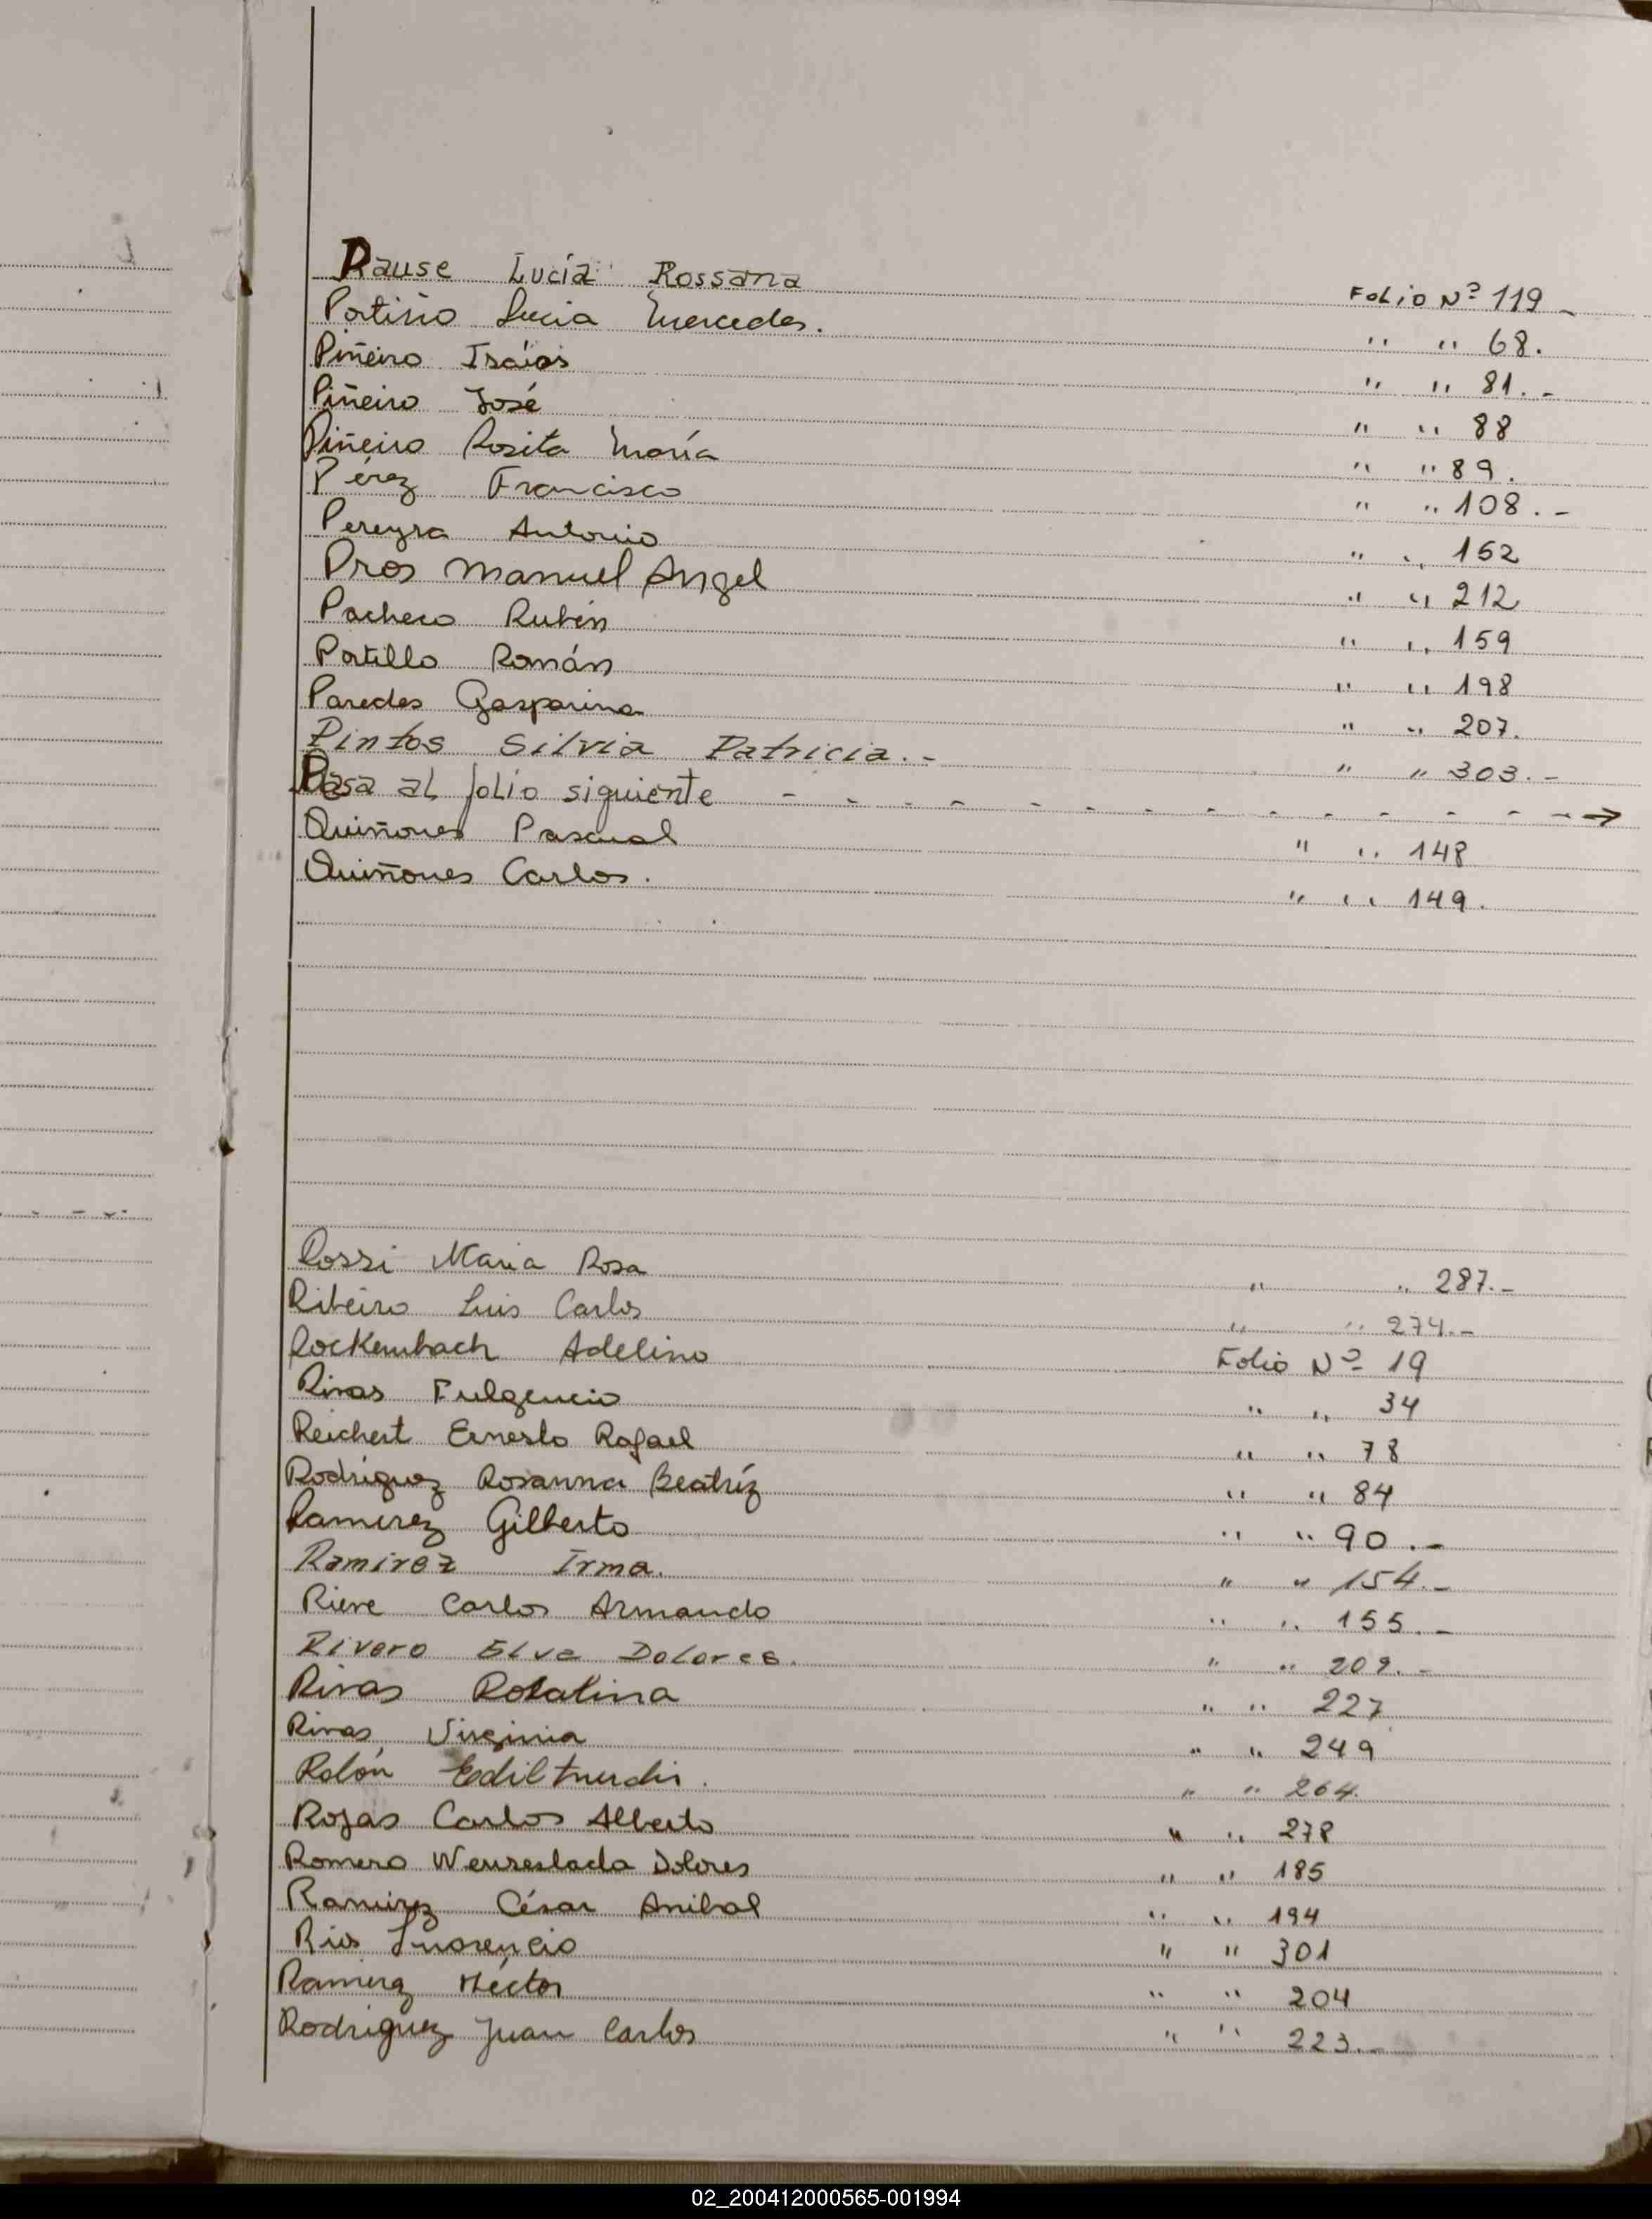 Pause Lucía Rossana Folio Nº 119 -
Portiño Lucia Mercedes. " " 68.
Piñeiro Isaías " " 81.-
Piñeiro José " " 88
Piñeiro Rosita María " " 89.
Pérez Francisco " " 108.-
Pereyra Antonio " " 152
Pros Manuel Angel " " 212
Pacheco Rubén " " 159
Portillo Román " " 198
Paredes Gasparina " " 207.
Pintos Silvia Patricia.- " " 303.-
Pasa al folio siguiente - - - - - - - - - - - - - →
Quiñones Pascual " " 148
Quiñones Carlos. " " 149.
Rossi Maria Rosa " " 287.-
Ribeiro Luis Carlos " " 274.-
Rockembach Adelino Folio Nº 19
Rivas Fulgencio " " 34
Reichert Ernesto Rafael " " 78
Rodríguez Rosanna Beatríz " " 84
Ramirez Gilberto " " 90.-
Ramirez Irma. " " 154.-
Rieve Carlos Armando " " 155.-
Rivero Elva Dolores. " " 209.-
Rivas Rosalina " " 227
Rivas Virginia " " 249
Rolón Ediltrudis. " " 264.
Rojas Carlos Alberto " " 278
Romero Wenreslada Dolores " " 185
Ramirez César Anibal " " 194
Rios " " 301
Ramirez Héctor " " 204
Rodriguez Juan Carlos " " 223.-
02_200412000565-001994